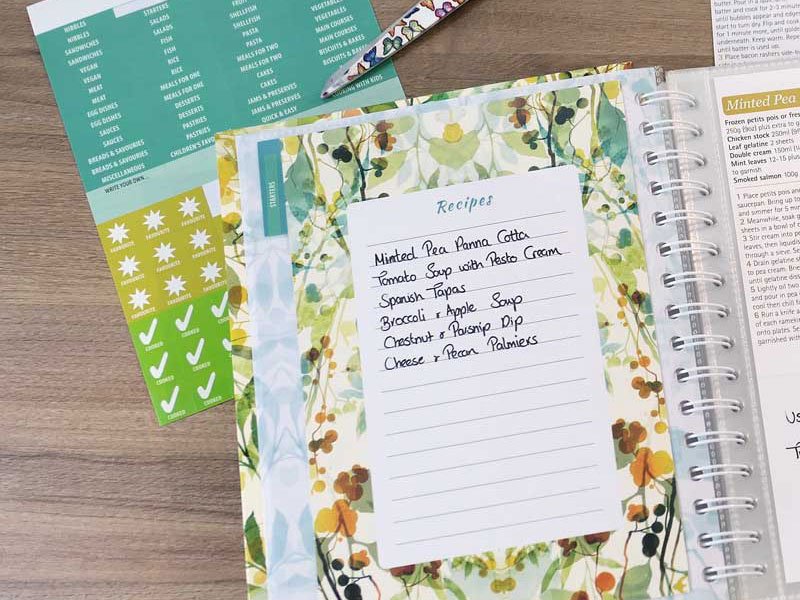 NIBBLES
NIBBLES
SANDWICHES
SANDWICHES
VEGAN
VEGAN
MEAT
MEAT
EGG DISHES
EGG DISHES
SAUCES
SAUCES
BREADS & SAVOURIES
BREADS & SAVOURIES
MISCELLANEOUS
WRITE YOUR OWN...
STARTERS
SALADS
SALADS
FISH
FISH
RICE
RICE
MEALS FOR ONE
MEALS FOR ONE
DESSERTS
DESSERTS
PASTRIES
PASTRIES
CHILDREN'S FAVOU
FRUITS
SHELLFISH
SHELLFISH
PASTA
PASTA
MEALS FOR TWO
MEALS FOR TWO
CAKES
CAKES
JAMS & PRESERVES
JAMS & PRESERVES
QUICK & EASY
VEGETABLES
VEGETABLES
MAIN COURSES
MAIN COURSES
BISCUITS & BAKES
BISCUITS & BAKES
COOKING WITH KIDS
FAVOURITE
FAVOURITE
FAVOURITE
FAVOURITE
FAVOURITE
FAVOURITE
FAVOURITE
FAVOURITE
FAVOURITE
COOKED
COOKED
COOKED
COOKED
COOKED
COOKED
COOKED
COOKED
STARTERS
Recipes
Minted Pea Panna Cotta
Tomato Soup with Pesto Cream
Spanish Tapas
Broccoli & Apple Soup
Chestnut & Parsnip Dip
Cheese & Pecan Palmiers
butter and cook for 2-3 minutes
until bubbles appear and edges
start to turn dry. Flip and cook
for 1 minute more, until golden
underneath. Keep warm. Repeat
until batter is used up.
3 Place bacon rashers side-by
Minted Pea
Frozen petits pois or fres
250g (9oz) plus extra to g
Chicken stock 250ml
Leaf gelatine 2 sheets
Double cream 150ml
Mint leaves 12-15 plus
to garnish
Smoked salmon 100g
1 Place petits pois and
saucepan. Bring up to
and simmer for 5 min
2 Meanwhile, soak g
sheets in a bowl of c
3 Stir cream into po
leaves, then liquidise
through a sieve. Se
4 Drain gelatine
to pea cream. Brie
until gelatine diss
5 Lightly oil two
and pour in pea
cool then chill f
6 Run a knife a
of each rameki
onto plates. Se
garnished with